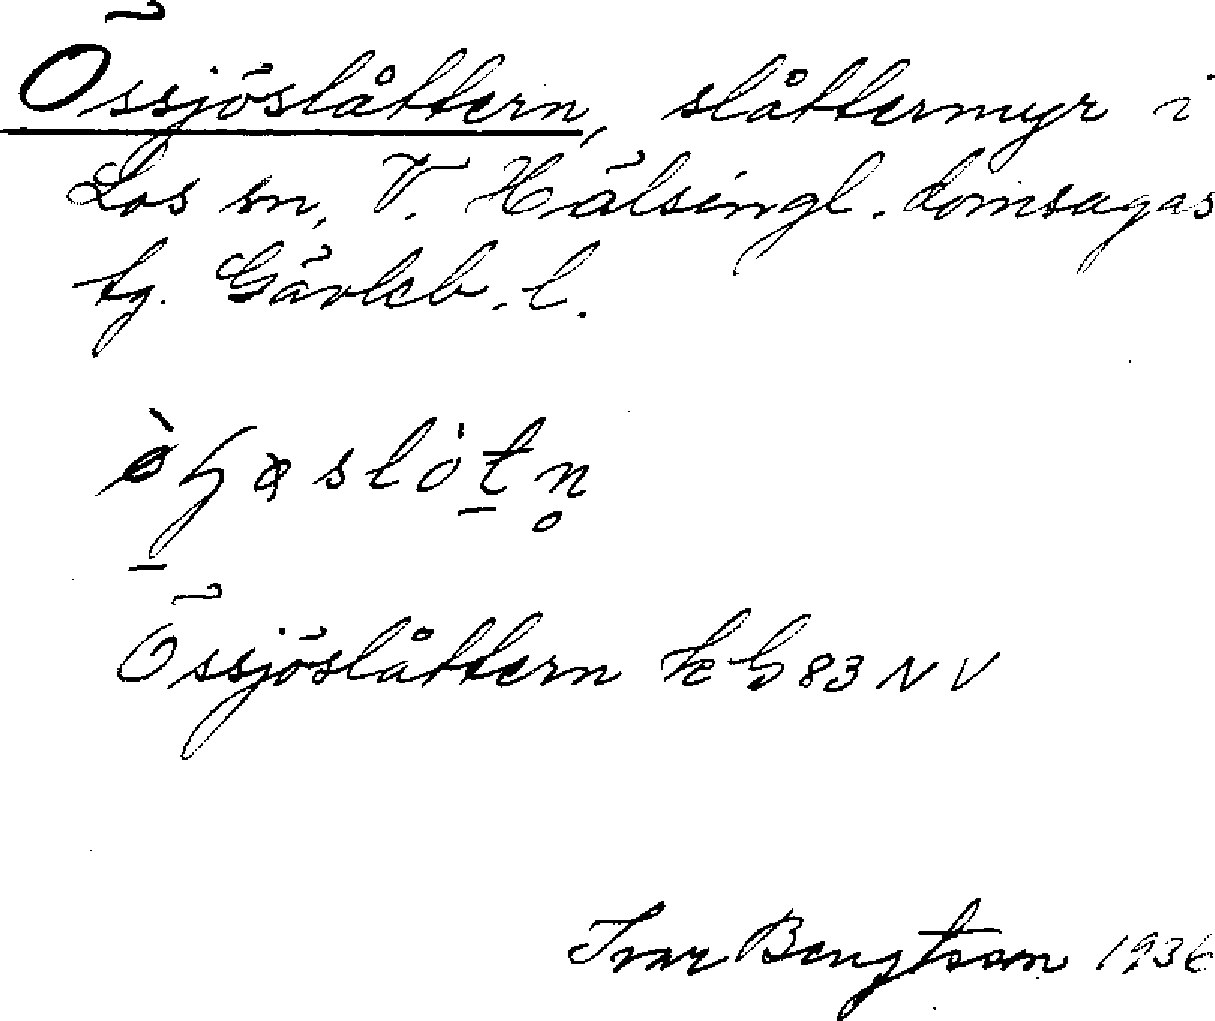 Össjöslåttern, slåttermyr i
Los sn, V. Hälsingl. domsagas
tg. Gävleb. l.
Össjöslåttern kb 83 NV
Ivar Bengtson 1936